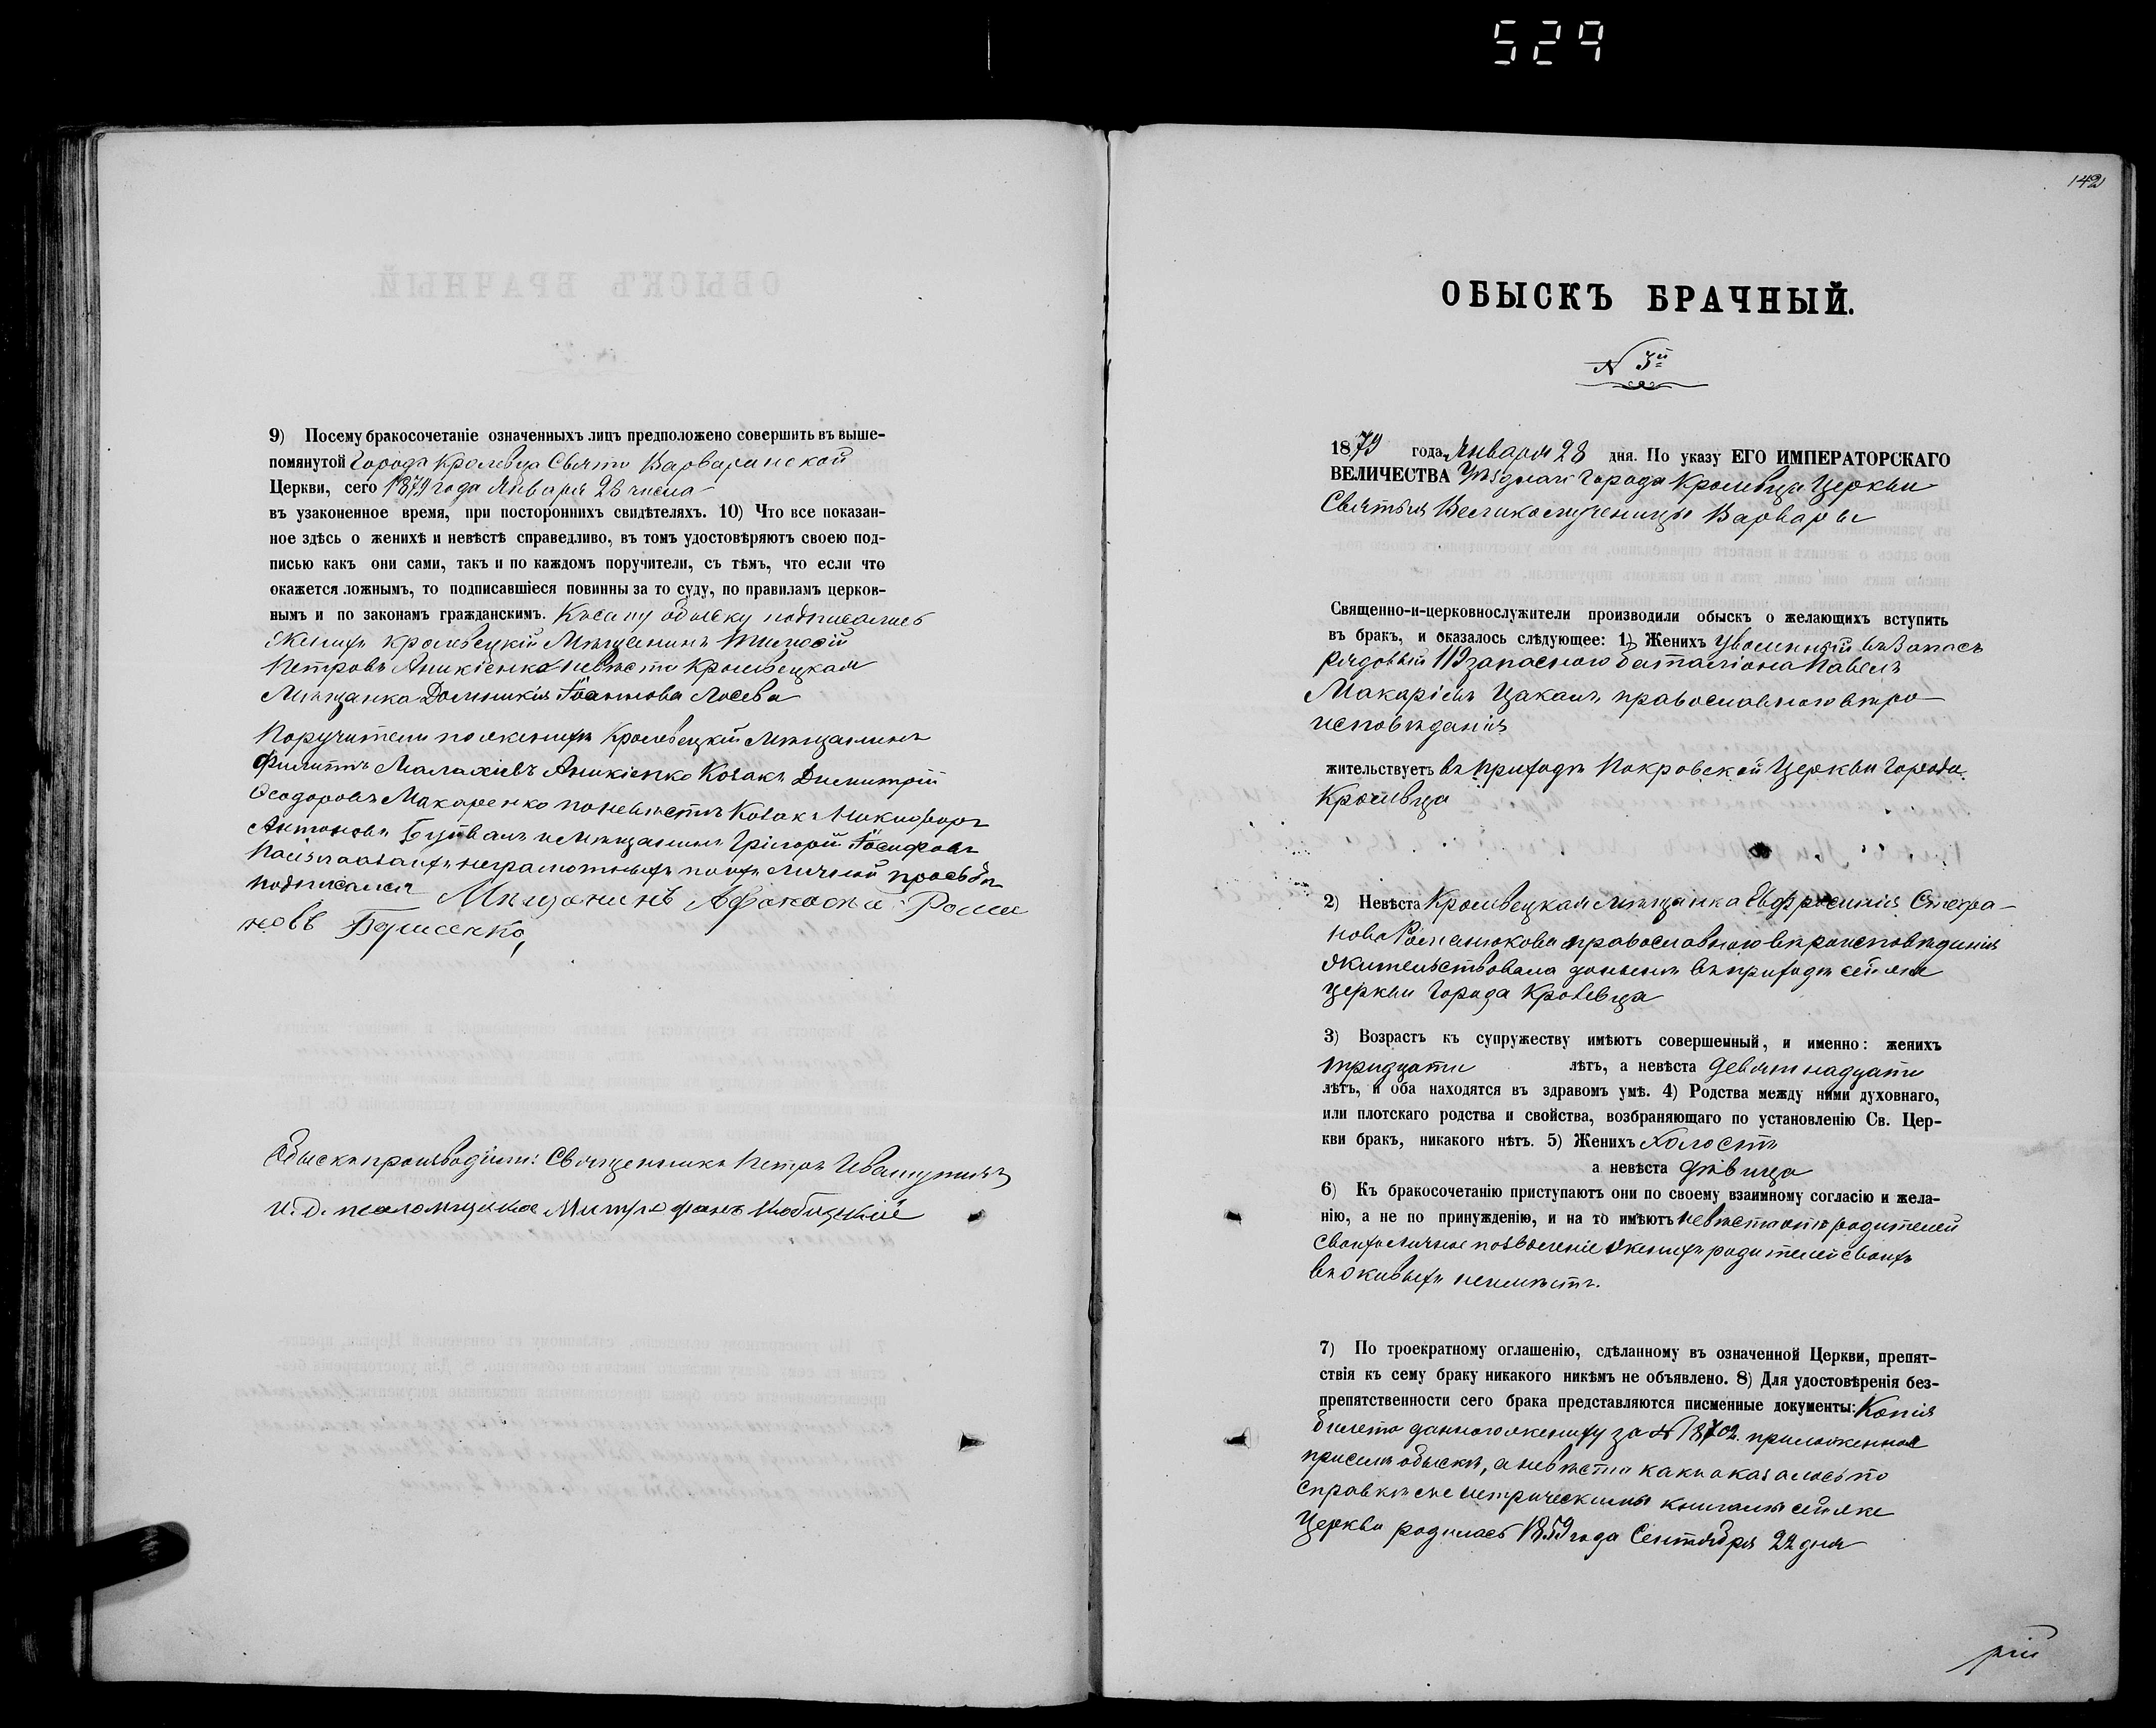 529
142
9) Посему бракосочетаніе означенныхъ лицъ предположено совершить въ выше-
помянутой Города Кролевца Свято Варваринской
Церкви, сего 1879 года Января 28 числа
въ узаконенное время, при постороннихъ свидѣтеляхъ. 10) Что все показан-
ное здѣсь о женихѣ и невѣстѣ справедливо, въ томъ удостовѣряютъ своею под-
писью какъ они сами, такъ и по каждомъ поручители, съ тѣмъ, что если что
окажется ложнымъ, то подписавшіеся повинны за то суду, по правиламъ церков-
нымъ и по законамъ гражданскимъ. Къ сему обыску подписались
женихъ кролевецкій Мѣщанинъ
Петровъ Аникіенко невѣста Кролевецкая
Мѣщанка Домникія Іоаннова Лосева
Поручители по женихѣ Кролевецкій Мѣщанинъ
Филиппъ Малахіевъ Аникіенко Козакъ Димитрій
Ѳеодоровъ Макаренко по невѣстѣ Козакъ Никифоръ
Антоновъ и Мѣщанинъ Григорій Іосифовъ
неграмотныхъ по ихъ личной просьбѣ
подписался Мѣщанинъ Рома
новъ
Обыскъ производили: Священникъ Петръ
и. д. псаломщика Митрофанъ
ОБЫСКЪ БРАЧНЫЙ.
N 3й
1879 года, Января 28 дня. По указу ЕГО ИМПЕРАТОРСКАГО
ВЕЛИЧЕСТВА Уѣзднаго Города Кролевца Церкви
Святыя Великомученицы Варвары
Священно-и-церковнослужители производили обыскъ о желающихъ вступить
въ бракъ, и оказалось слѣдующее: 1) Женихъ Уволенный въ Запасъ
рядовый запаснаго баталіона Павелъ
Макаріевъ Цакалъ православнаго вѣро-
исповѣданія
жительствуетъ въ приходѣ Покровской Церкви Города
Кролевца
2) Невѣста Кролевецкая Мѣщанка Евфросинія Стефа-
нова Романюкова православнаго вѣроисповѣданія
жительствовала донынѣ въ приходѣ сей же
церкви Города Кролевца
3) Возрастъ къ супружеству имѣютъ совершенный, и именно: женихъ
тридцати лѣтъ, а невѣста девятнадцати
лѣтъ, и оба находятся въ здравомъ умѣ. 4) Родства между ними духовнаго,
или плотскаго родства и свойства, возбраняющаго по установленію Св. Цер-
кви бракъ, никакого нѣтъ. 5) Женихъ холостъ
а невѣста дѣвица
6) Къ бракосочетанію приступаютъ они по своему взаимному согласію и жела-
нію, а не по принужденію, и на то имѣютъ невѣста отъ родителей
своихъ личное позволеніе женихъ родителей своихъ
въ живыхъ неимѣетъ.
7) По троекратному оглашенію, сдѣланному въ означенной Церкви, препят-
ствія къ сему браку никакого никѣмъ не объявлено. 8) Для удостовѣренія без-
препятственности сего брака представляются писменные документы: Копія
билета даннаго жениху за N приложенная
при семъ обыскѣ, а невѣста какъ оказалось по
справкѣ съ метрическими книгами сей же
Церкви родилась 1859 года Сентября 22 дня